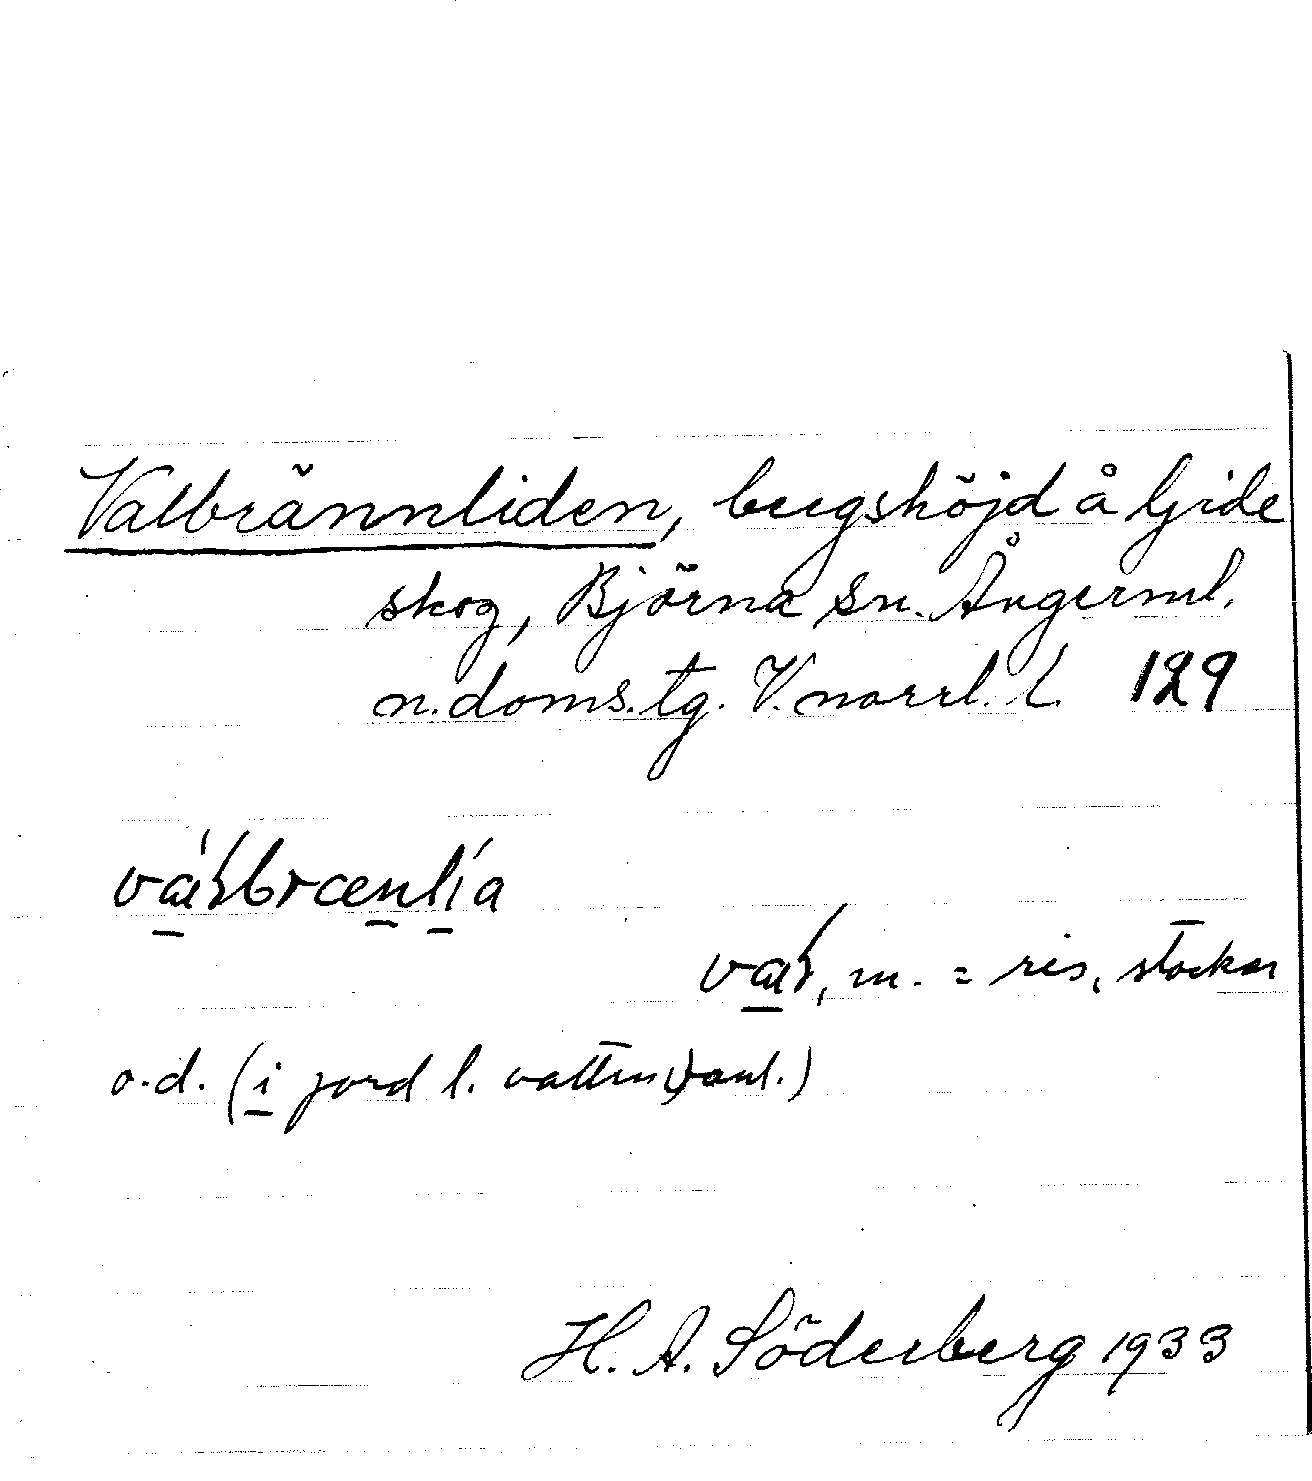 Valbrännliden, bergshöjd å Gide
skog, Björna sn. Ångerml.
n. doms. tg. V. norrl. l. 129
m. = ris, stockar
o.d. (i jord l. vatten vanl.)
H. A. Söderberg 1933